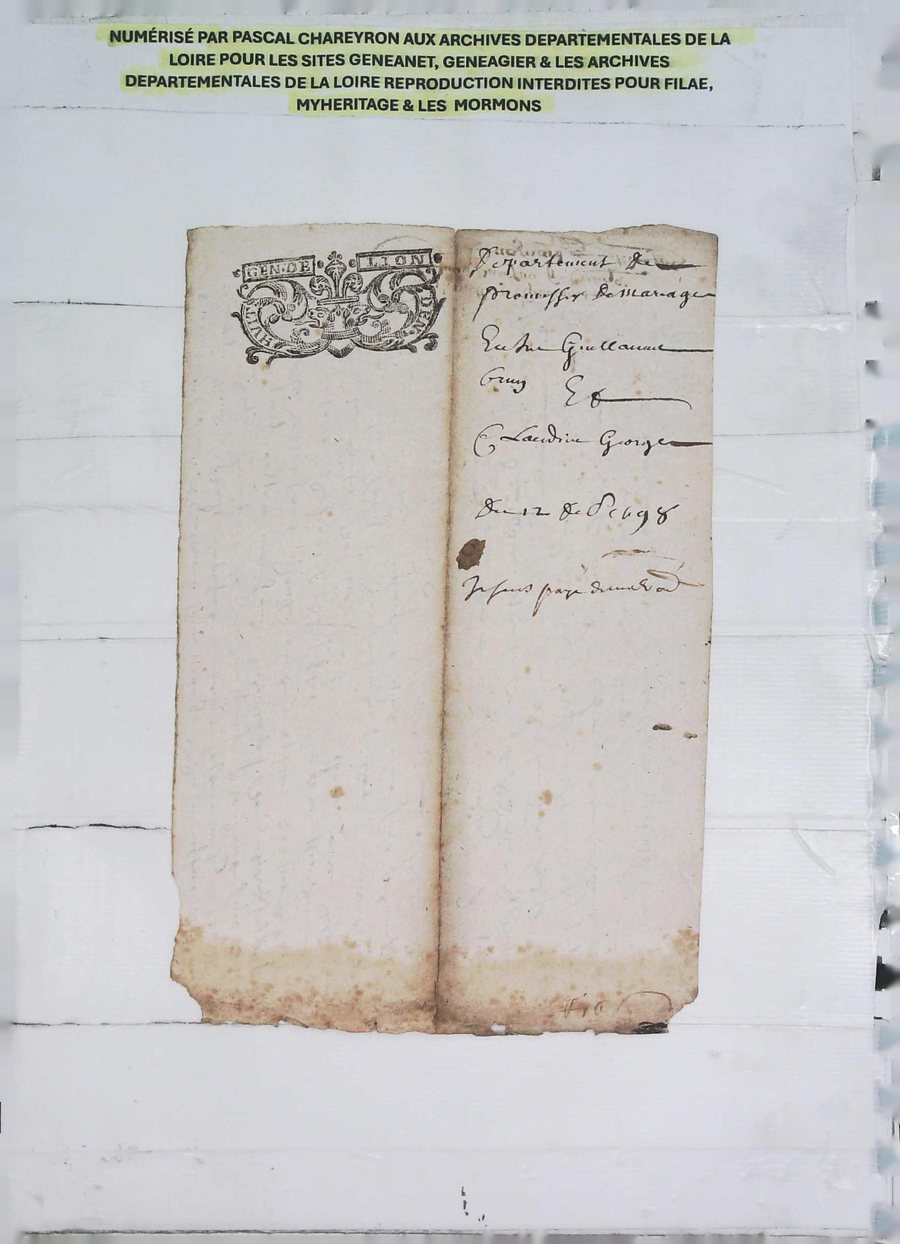 NUMÉRISÉ PAR PASCAL CHAREYRON AUX ARCHIVES DEPARTEMENTALES DE LA
LOIRE POUR LES SITES GENEANET, GENEAGIER & LES ARCHIVES
DEPARTEMENTALES DE LA LOIRE REPRODUCTION INTERDITES POUR FILAE,
MYHERITAGE & LES MORMONS
GEN·DE LION
HVIT DEN
Departement de
promesses de mariage
Entre Guillaume
Et
Claudine George
du 12 de 1698
Je suis payé